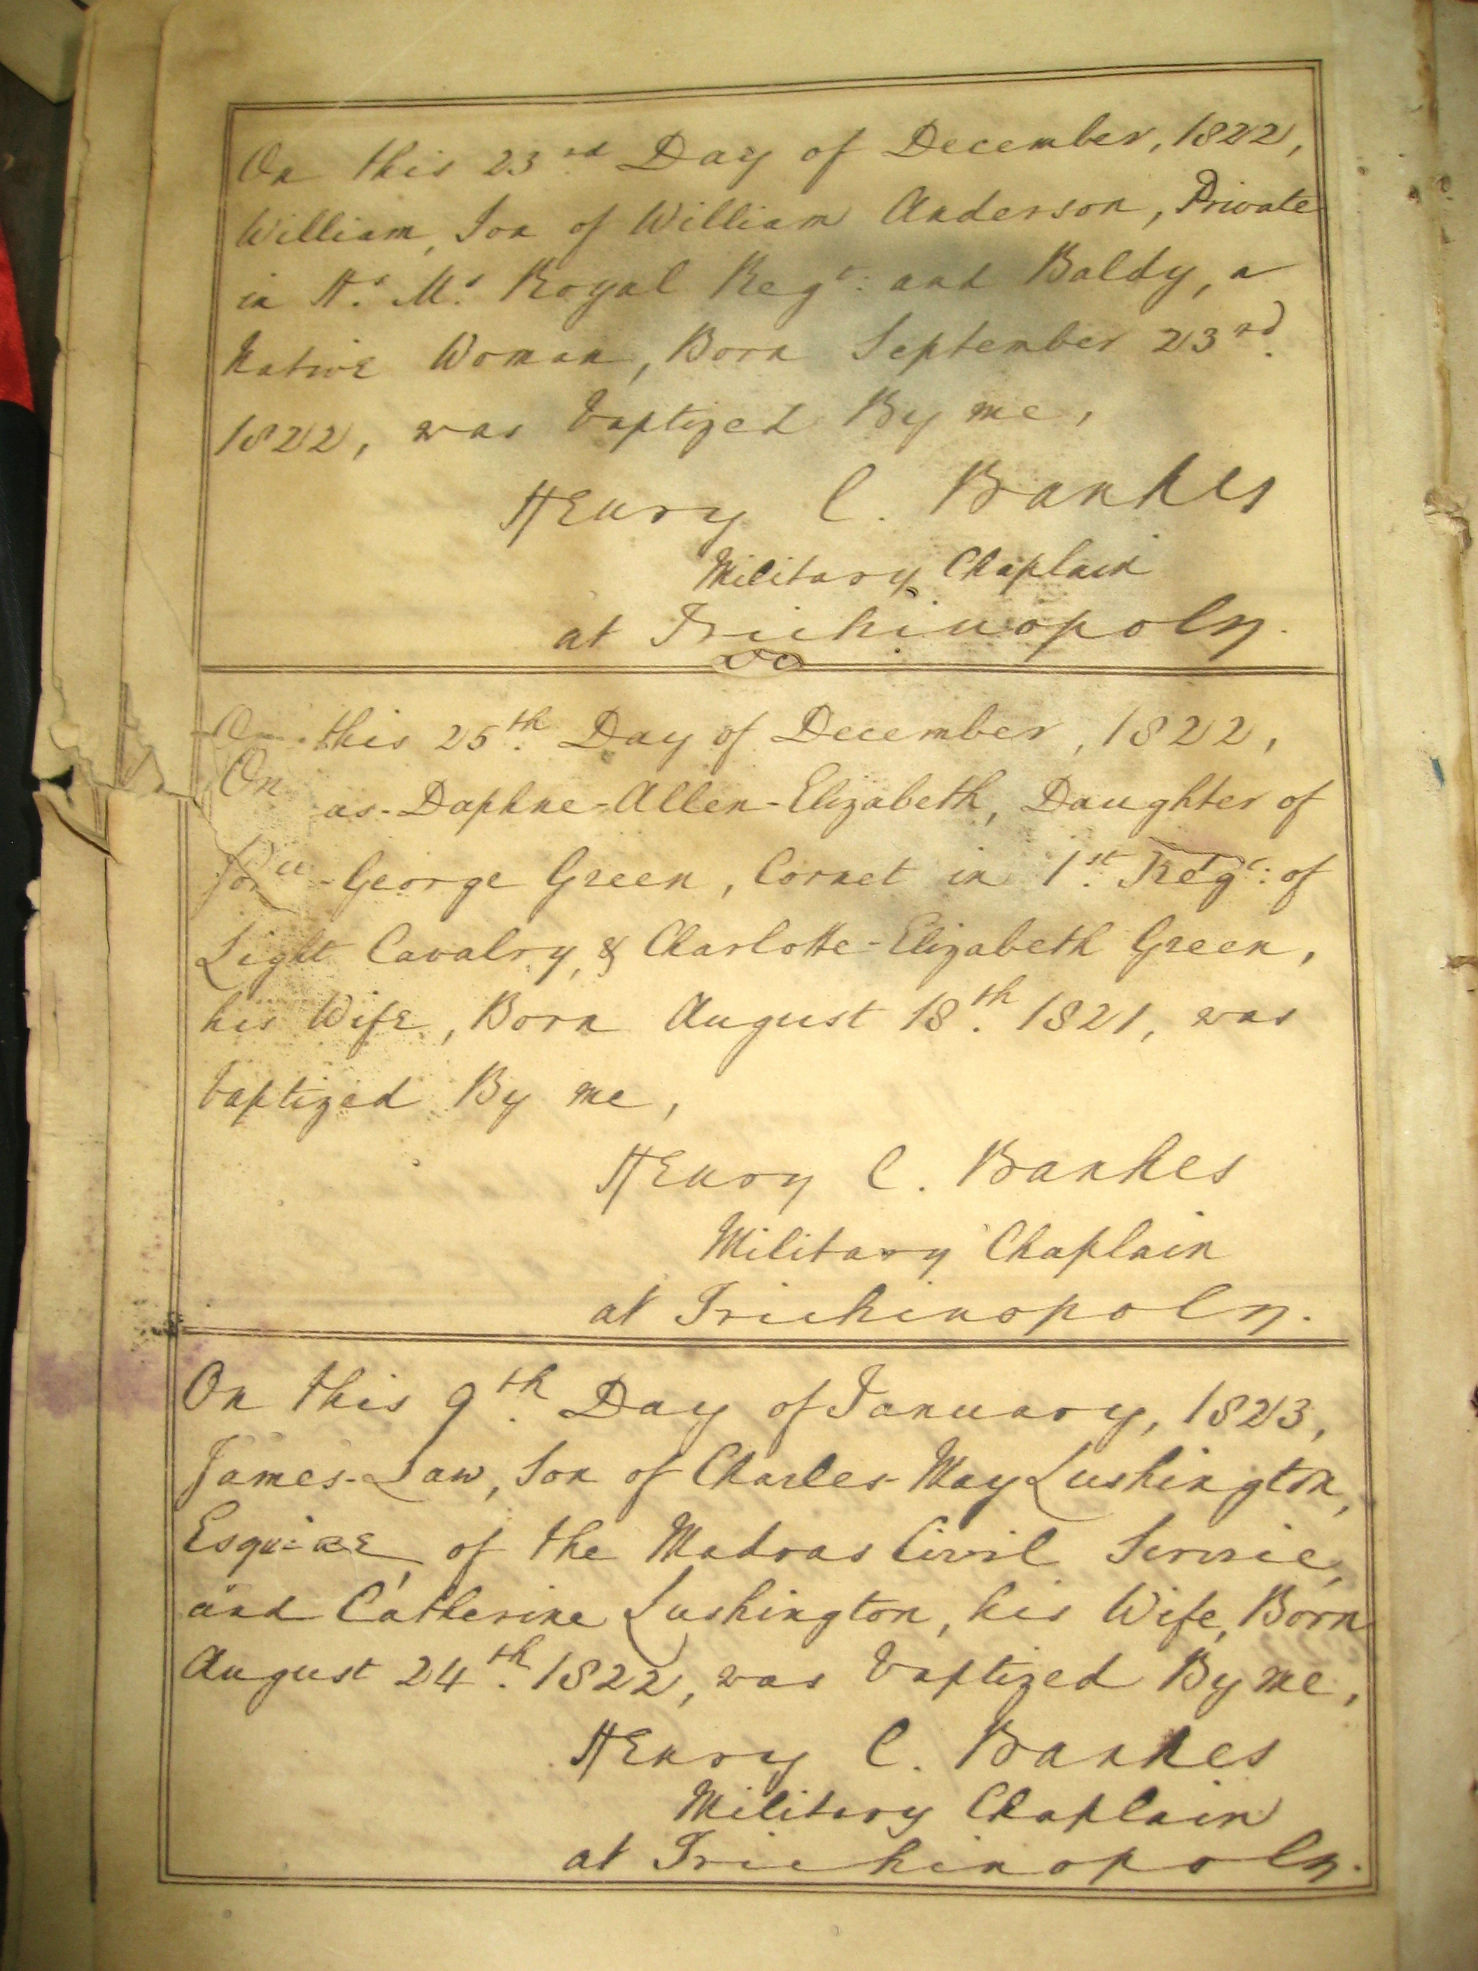 On this 23rd Day of December, 1822,
William, Son of William Anderson, Private
in H.s M.s Royal Regt: and Baldy, a
Native Woman, Born September 23rd.
1822, was baptized By me,
Henry C. Bankes
Military Chaplain
at Trichinopoly.
On this 25th. Day of December, 1822,
On as-Daphne-Allen-Elizabeth, Daughter of
George Green, Cornet in 1st. Regt: of
Light Cavalry, & Charlotte-Elizabeth Green,
his Wife, Born August 18th. 1821, was
baptized By me,
Henry C. Bankes
Military Chaplain
at Trichinopoly.
On this 9th. Day of January, 1823,
James-Law, Son of Charles-May Lushington,
Esquire, of the Madras Civil Service,
and Catherine Lushington, his Wife, Born
August 24th. 1822, was baptized By me,
Henry C. Bankes
Military Chaplain
at Trichinopoly.